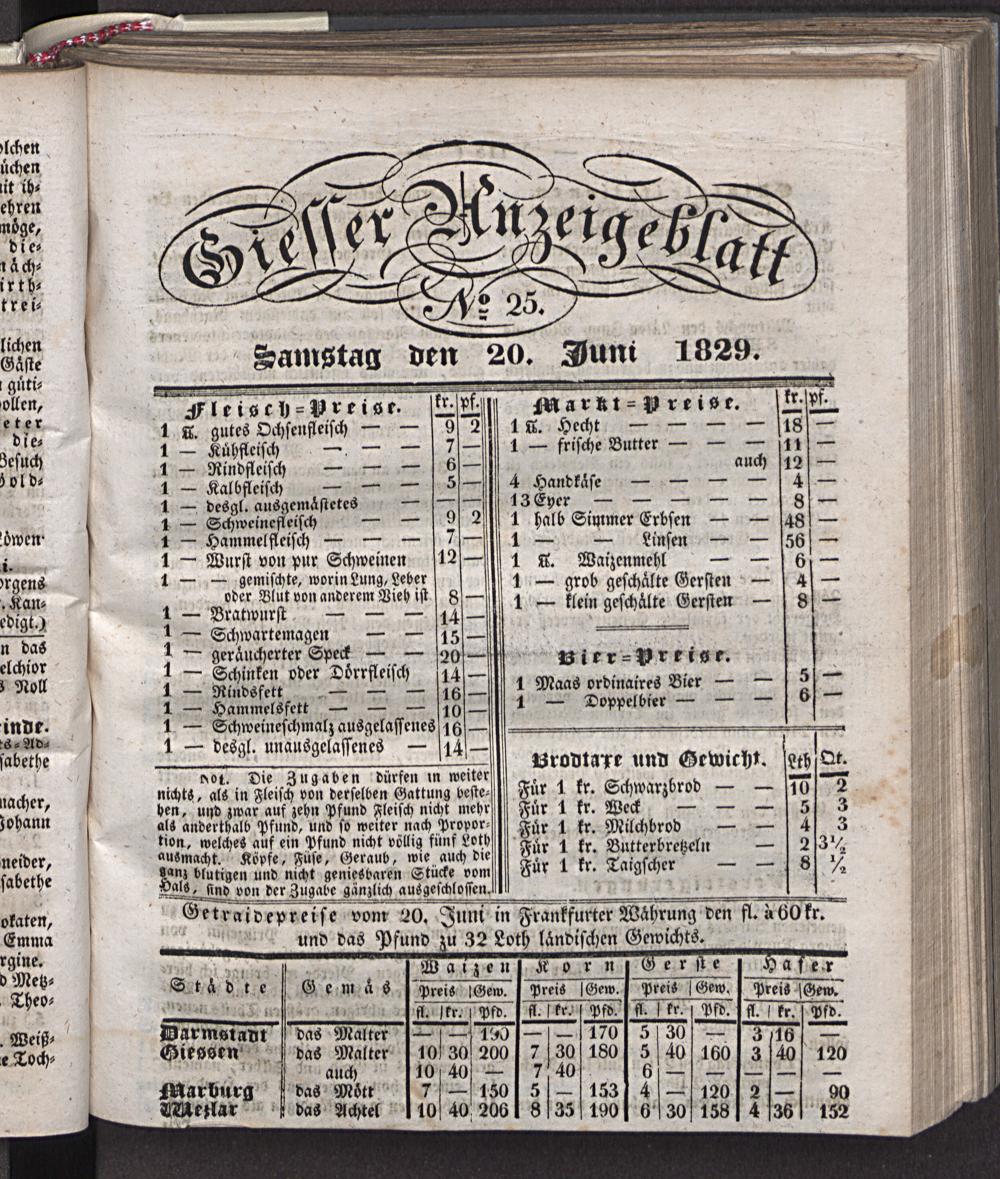 olchen
üchen
it ih-
ehren
möge,
die-
näch-
irth-
trei-
lichen
Gäste
güti-
ollen,
eter
die-
Besuch
öold-
Löwen
i.
orgens
. Kan-
edigt.)
n das
elchior
s Noll
inde.
ts-Ad-
sabethe
nacher,
Johann
neider,
sabethe
okaten,
Emma
rgine.
d Metz-
Theo-
. Weiß-
ne Toch-
Giesser Anzeigeblatt
No 25.
Samstag den 20. Juni 1829.
Fleisch=Preise. kr. pf.
1 ℔. gutes Ochsenfleisch — — 9 2
1 — Kühfleisch — — 7 —
1 — Rindfleisch — — 6 —
1 — Kalbfleisch — — 5 —
1 — desgl. ausgemästetes — — —
1 — Schweinefleisch — — 9 2
1 — Hammelfleisch — — 7 —
1 — Wurst von pur Schweinen 12 —
1 — — gemischte, worin Lung, Leber
oder Blut von anderem Vieh ist 8 —
1 — Bratwurst — — — 14 —
1 — Schwartemagen — — 15 —
1 — geräucherter Speck — — 20 —
1 — Schinken oder Dörrfleisch 14 —
1 — Rindsfett — — — 16 —
1 — Hammelsfett — — — 10 —
1 — Schweineschmalz ausgelassenes 16 —
1 — desgl. unausgelassenes — 14 —
Not. Die Zugaben dürfen in weiter
nichts, als in Fleisch von derselben Gattung beste-
hen, und zwar auf zehn Pfund Fleisch nicht mehr
als anderthalb Pfund, und so weiter nach Propor-
tion, welches auf ein Pfund nicht völlig fünf Loth
ausmacht. Köpfe, Füse, Geraub, wie auch die
ganz blutigen und nicht geniesbaren Stücke vom
Hals, sind von der Zugabe gänzlich ausgeschlossen.
Markt=Preise. kr. pf.
1 ℔. Hecht — — — — 18 —
1 — frische Butter — — — 11 —
auch 12 —
4 Handkäse — — — — 4 —
13 Eyer — — — — 8 —
1 halb Simmer Erbsen — — 48 —
1 — — Linsen — — 56 —
1 ℔. Waizenmehl — — 6 —
1 — grob geschälte Gersten — 4 —
1 — klein geschälte Gersten — 8 —
Bier=Preise.
1 Maas ordinaires Bier — — 5 —
1 — Doppelbier — — 6 —
Brodtaxe und Gewicht. Lth Qt.
Für 1 kr. Schwarzbrod — — 10 2
Für 1 kr. Weck — — 5 3
Für 1 kr. Milchbrod — — 4 3
Für 1 kr. Butterbretzeln — 2 3½
Für 1 kr. Taigscher — — 8 ½
Getraidepreise vom 20. Juni in Frankfurter Währung den fl. à 60 kr.
und das Pfund zu 32 Loth ländischen Gewichts.
Städte Gemäs Waizen Korn Gerste Hafer
Preis Gew. Preis Gew. Preis Gew. Preis Gew.
fl. kr. Pfd. fl. kr. Pfd. fl. kr. Pfd. fl. kr. Pfd.
Darmstadt das Malter — — 190 — — 170 5 30 — 3 16 —
Giessen das Malter 10 30 200 7 30 180 5 40 160 3 40 120
auch 10 40 — 7 40 6 — — — — —
Marburg das Mött 7 — 150 5 — 153 4 — 120 2 — 90
Wezlar das Achtel 10 40 206 8 35 190 6 30 158 4 36 152